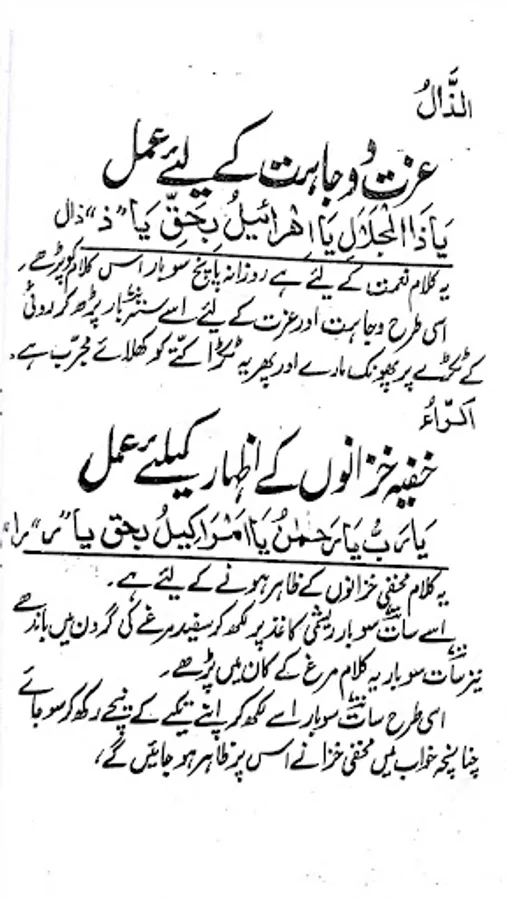 الذَّالُ
عزت و وجاہت کے لئے عمل
یَا ذَا الْجَلَالِ یَا اِهْرَائِیْلُ بِحَقِّ یَا "ذ" ذال
یہ کلام نعمت کے لئے ہے روزانہ پانچ سو بار اس کلام کو پڑھے۔
اسی طرح وجاہت اور عزت کے لئے اسے ستر بار پڑھ کر روٹی
کے ٹکڑے پر پھونک مارے اور پھر یہ ٹکڑا کتّے کو کھلائے مجرّب ہے۔
اَلرَّاءُ
خفیہ خزانوں کے اظہار کیلئے عمل
یَا رَبُّ یَا رَحْمٰنُ یَا اَمْرَاکِیْلُ بحق یا "ر" "را"
یہ کلام مخفی خزانوں کے ظاہر ہونے کے لئے ہے۔
اسے سات سو بار ریشمی کاغذ پر لکھ کر سفید مرغے کی گردن میں باندھے
نیز سات سو بار یہ کلام مرغ کے کان میں پڑھے۔
اسی طرح سات سو بار اسے لکھ کر اپنے تکیے کے نیچے رکھ کر سو جائے
چنانچہ خواب میں مخفی خزانے اس پر ظاہر ہو جائیں گے،